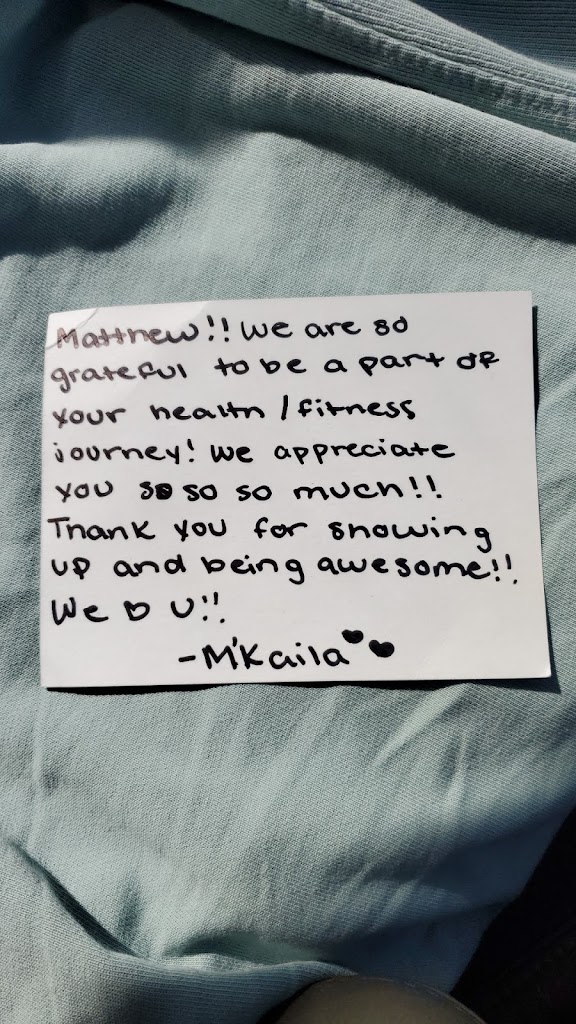 Matthew!! We are so
grateful to be a part of
your health/fitness
journey! We appreciate
you so so so much!!
Thank you for showing
up and being awesome!!
We ♡ U!!
-M'Kaila ♥♥